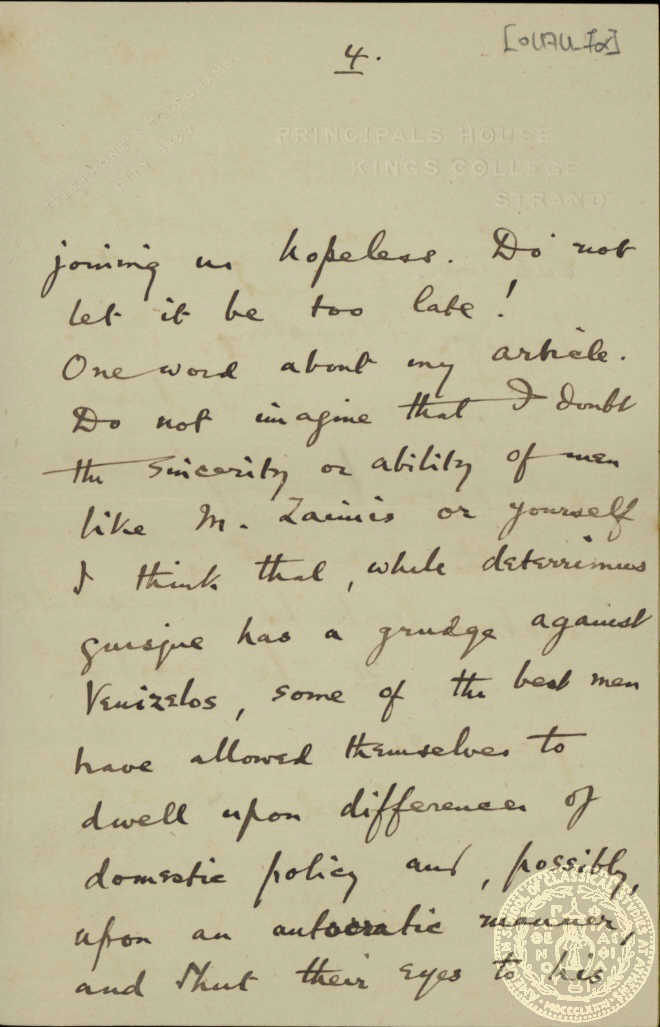 4.
PRINCIPALS HOUSE
KINGS COLLEGE
STRAND
joining us hopeless. Do not
let it be too late!
One word about my article.
Do not imagine that I doubt
the sincerity or ability of men
like M. Zaimis or yourself
I think that, while deterrimus
quisque has a grudge against
Venizelos, some of the best men
have allowed themselves to
dwell upon differences of
domestic policy and, possibly,
upon an autocratic manner,
and shut their eyes to his
AMERICAN SCHOOL OF CLASSICAL STUDIES AT ATHENS
MDCCCLXXXI